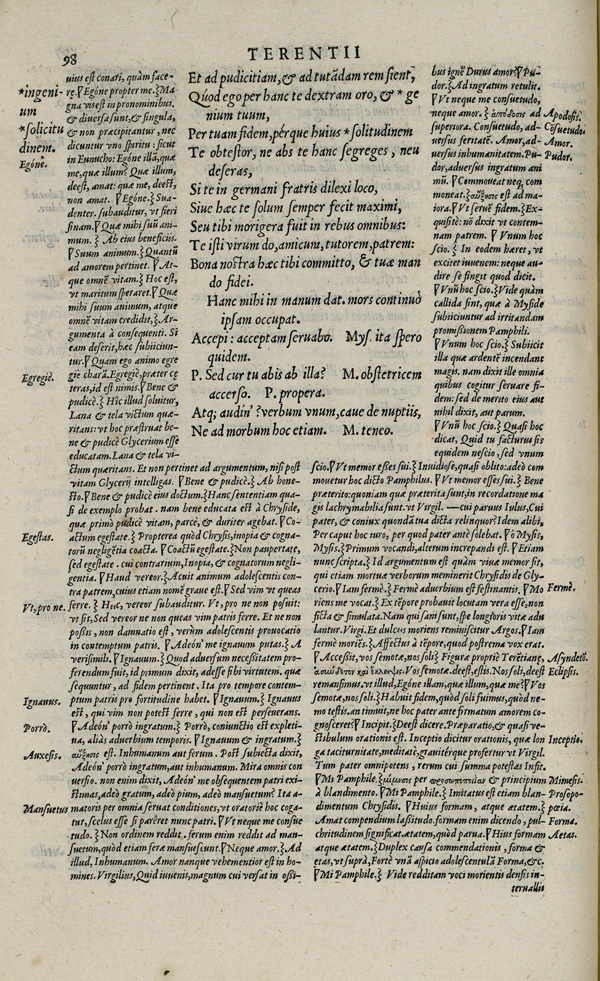 98
TERENTII
Et ad pudicitiam, & ad tutādam rem sient,
Quod ego per hanc te dextram oro, & * ge
nium tuum,
Per tuam fidem, pérque huius * solitudinem
Te obtestor, ne abs te hanc segreges, neu
deseras,
Si te in germani fratris dilexi loco,
Siue hæc te solum semper fecit maximi,
Seu tibi morigera fuit in rebus omnibus:
Te isti virum do, amicum, tutorem, patrem:
Bona nostra hæc tibi committo, & tuæ man
do fidei.
Hanc mihi in manum dat. mors continuò
ipsam occupat.
Accepi: acceptam seruabo. Mys. ita spero
quidem.
P. Sed cur tu abis ab illa? M. obstetricem
accerso. P. propera.
Atq; audin'? verbum vnum, caue de nuptiis,
Ne ad morbum hoc etiam. M. teneo.
*ingeni-
um
*solicitu
dinem.
Egóne.
Egregiè.
Egestas.
Vt, pro ne.
Ignauus.
Porrò.
Auxesis.
Mansuetus
uius est conari, quàm face-
re. ꝶ Egóne propter me. ⸹ Ma
gna vis est in pronominibus.
& diuersa sunt, & singula,
& non præcipitantur, nec
dicuntur vno spiritu: sicut
in Eunucho: Egóne illā, quæ
me, quæ illum? Quæ illum,
deest, amat: quæ me, deest,
non amat. ꝶ Egóne. ⸹ Sua-
denter. subauditur, vt fieri
sinam. ꝶ Quæ mihi suū ani-
mum. ⸹ Ab eius beneficiis.
ꝶ Suum animum. ⸹ Quantū
ad amorem pertinet. ꝶ At-
que omnē vitam. ⸹ Hoc est,
vt maritum speraret. ꝶ Quæ
mihi suum animum, atque
omnē vitam credidit, ⸹ Ar-
gumenta à consequenti. Si
eam deserit, hæc subiiciun-
tur. ꝶ Quam ego animo egre
giè charā. Egregiè, præter cę
teras, id est nimis. ꝶ Bene &
pudicè. ⸹ Hîc illud soluitur,
Lana & tela victum quæ-
ritans: vt hoc præstruat be-
ne & pudicè Glycerium esse
educatam. Lana & tela vi-
ctum quæritans. Et non pertinet ad argumentum, nisi post
vitam Glycerij intelligas. ꝶ Bene & pudicè. ⸹ Ab hone-
sto. ꝶ Bene & pudicè eius doctum. ⸹ Hanc sententiam qua-
si de exemplo probat. nam bene educata est à Chryside,
quæ primò pudicè vitam, parcè, & duriter agebat. ꝶ Co-
actum egestate. ⸹ Propterea quòd Chrysis, inopia & cogna-
torū negligētia coacta. ꝶ Coactū egestate. ⸹ Non paupertate,
sed egestate. cui contrarium, Inopia, & cognatorum negli-
gentia. ꝶ Haud vereor. ⸹ Acuit animum adolescentis con-
tra patrem, cuius etiam nomē graue est. ꝶ Sed vim vt queas
ferre. ⸹ Hoc, vereor subauditur. Vt, pro ne non posuit:
vt sit, Sed vereor ne non queas vim patris ferre. Et ne non
possis, non damnatio est, verùm adolescentis prouocatio
in contemptum patris. ꝶ Adeón' me ignauum putas. ⸹ A
verisimili. ꝶ Ignauum. ⸹ Quod aduersum necessitatem pro-
ferendum fuit, id primum dixit, adesse sibi virtutem. quæ
sequuntur, ad fidem pertinent. Ita pro tempore contem-
ptum patris pro fortitudine habet. ꝶ Ignauum. ⸹ Ignauus
est, qui vim non potest ferre, qui non est perseuerans.
ꝶ Adeón' porrò ingratum. ⸹ Porrò, coniunctio est expleti-
ua, aliàs aduerbium temporis. ꝶ Ignauum & ingratum. ⸹
αὔξησις est. Inhumanum aut ferum. Post subiecta dixit,
Adeón' porrò ingratum, aut inhumanum. Mira omnis con
uersio. non enim dixit, Adeón' me obsequentem patri exi-
stimas, adeò gratum, adeò pium, adeò mansuetum? Ita a-
matoris per omnia seruat conditiones, vt oratoriè hoc coga-
tur, scelus esse si pareret nunc patri. ꝶ Vt neque me consue
tudo. ⸹ Non ordinem reddit. ferum enim reddit ad man-
suetum, quòd etiam feræ mansuescunt. ꝶ Neque amor. ⸹ Ad
illud, Inhumanum. Amor nanque vehementior est in ho-
mines. Virgilius, Quid iuuenis, magnum cui versat in ossi-
bus ignē Durus amor? ꝶ Pu-
dor. ⸹ Ad ingratum retulit.
ꝶ Vt neque me consuetudo,
neque amor. ⸹ ἀπόδοσις ad
superiora. Consuetudo, ad-
uersus feritatē. Amor, ad-
uersus inhumanitatem. Pu-
dor, aduersus ingratum ani
mū. ꝶ Commoueat neq, com
moneat. ⸹ αὔξησις est ad ma-
iora. ꝶ Vt seruē fidem. ⸹ Ex-
quisitè: nō dixit vt contem-
nam patrem. ꝶ Vnum hoc
scio. ⸹ In eodem hæret, vt
exciret iuuenem: neque au-
dire se fingit quod dicit.
ꝶ Vnū hoc scio. ⸹ Vide quàm
callida sint, quæ à Myside
subiiciuntur ad irritandam
promissionem Pamphili.
ꝶ Vnum hoc scio. ⸹ Subiicit
illa quæ ardentē incendant
magis. nam dixit ille omnia
quibus cogitur seruare fi-
dem: sed de merito eius aut
nihil dixit, aut parum.
ꝶ Vnū hoc scio. ⸹ Quasi hoc
dicat, Quid tu facturus sis
equidem nescio, sed vnum
scio. ꝶ Vt memor esses sui. ⸹ Inuidiosè, quasi oblito: adeò com
mouetur hoc dicto Pamphilus. ꝶ Vt memor esses sui. ⸹ Bene
præterito: quoniam quæ præterita sunt, in recordatione ma
gis lachrymabilia sunt. vt Virgil. —cui paruus Iulus, Cui
pater, & coniux quondā tua dicta relinquor? Idem alibi,
Per caput hoc iuro, per quod pater antè solebat. ꝶ ô Mysis,
Mysis. ⸹ Primum vocandi, alterum increpandi est. ꝶ Etiam
nunc scripta. ⸹ Id argumentum est quàm viuæ memor sit,
qui etiam mortuæ verborum meminerit Chrysidis de Gly-
cerio. ꝶ Iam fermè. ⸹ Fermè aduerbium est festinantis. ꝶ Mo
riens me vocat. ⸹ Ex tēpore probauit locutam vera esse, non
ficta & simulata. Nam qui sani sunt, spe longioris vitæ adu
lantur. Virgi. Et dulces moriens reminiscitur Argos. ꝶ Iam
fermè moriēs. ⸹ Affectus à tēpore, quod postrema vox erat.
ꝶ Accessit, vos semotæ, nos soli. ⸹ Figuræ propriè Terētianę,
ἀσύνδετον καὶ ἔκλειψις. Vos semotæ, deest, estis. Nos soli, deest
remansimus. vt illud, Egóne illam, quæ illum, quæ me? ꝶ Vos
semotæ, nos soli. ⸹ Habuit fidem, quòd soli fuimus, quòd ne-
mo testis. an timuit, ne hoc pater ante firmatum amorem co-
gnosceret? ꝶ Incipit. ⸹ Deest dicere. Præparatio, & quasi ve-
stibulum orationis est. Inceptio dicitur orationis, quæ lon
ga taciturnitate, meditatè, grauitérque profertur vt Virgil.
Tum pater omnipotens, rerum cui summa potestas Infit.
ꝶ Mi Pamphile. ⸹ μίμησις per προσωποποιίαν & principium
à blandimento. ꝶ Mi Pamphile. ⸹ Imitatus est etiam blan-
dimentum Chrysidis. ꝶ Huius formam, atque ætatem. ⸹
Amat compendium lasitudo. formam enim dicendo, pul-
chritudinem significat: ætatem, quòd parua. ꝶ Hius formam
atque ætatem. ⸹ Duplex causa commendationis, forma &
ætas, vt suprà, Fortè vnā aspicio adolescentulā Forma, &c.
ꝶ Mi Pamphile. ⸹ Vide redditam voci morientis densis in-
teruallis
Apodosis.
Cōsuetudo.
Amor.
Pudor.
Fermè.
Asyndetō.
Eclipsis.
Inceptio.
Mimesis.
Prosopo-
pœia.
Forma.
Aetas.